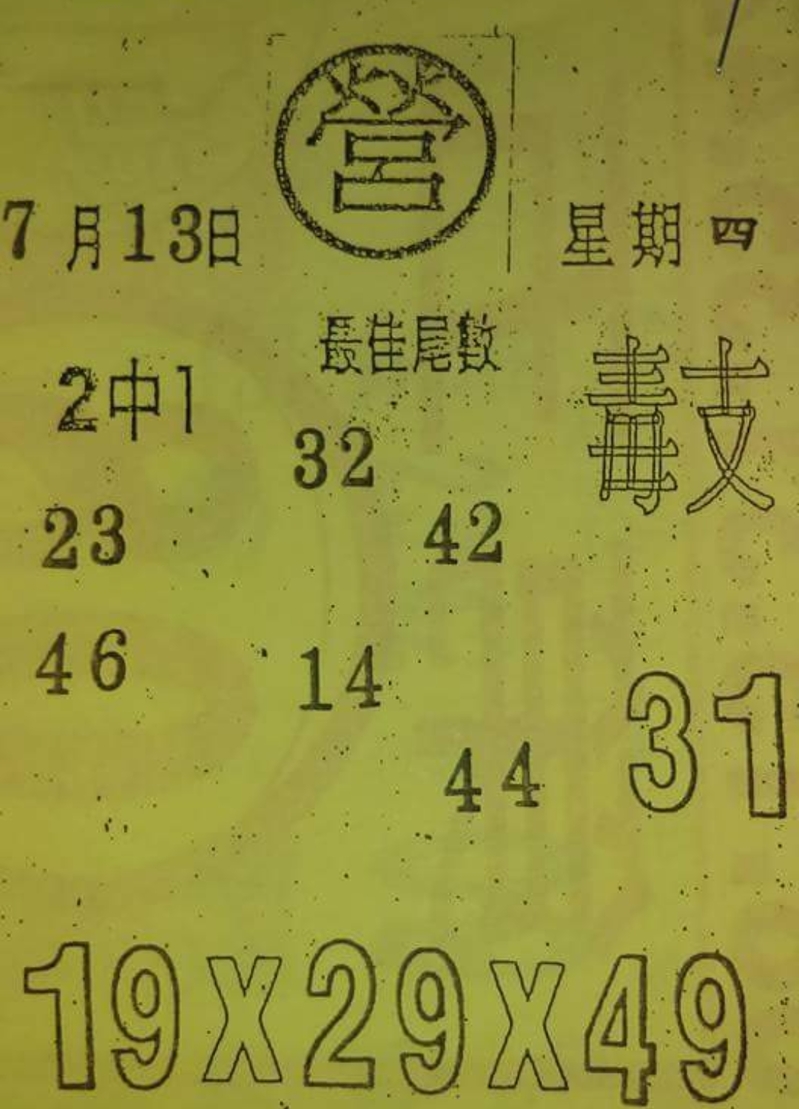 營
7月13日 星期四
最佳尾數
2中1 毒支
32
23 42
46 14
31
44
19X29X49